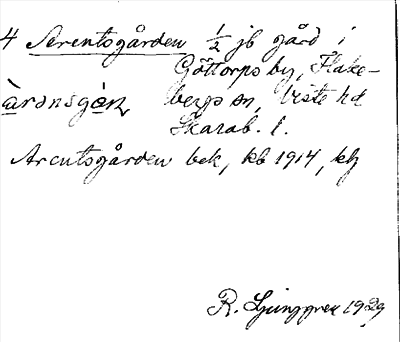 4 Arentsgården 1/2 jb gård i
Göttorps by, Flake-
bergs sn, Viste hd
àrànsgòɳ
Skarab. l.
Arentsgården bek, kb 1914, kg
R. Ljunggren 1929